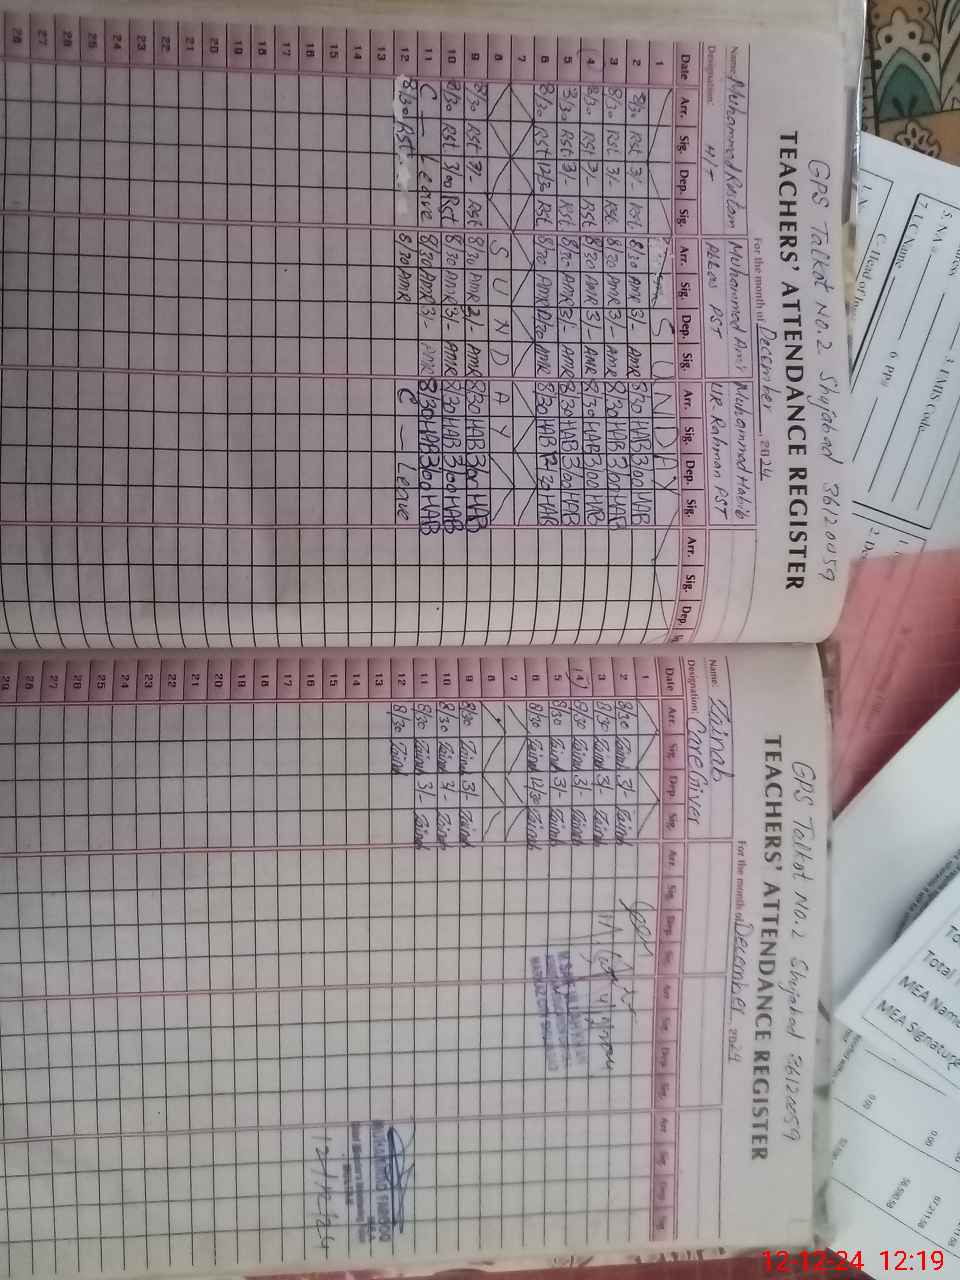 GPS Talkot No.2 Shujabad 36120059
TEACHERS' ATTENDANCE REGISTER
For the month of December, 2024
Name: Muhammad Rustam Muhammad Amir Muhammad Habib
Designation: H/T PST UR Rahman PST
Date Arr. Sig. Dep. Sig. Arr. Sig. Dep. Sig. Arr. Sig. Dep. Sig. Arr. Sig. Dep.
1 SUNDAY
2 8/30 Rst 3/- Rst 8/30 AMR 3/- AMR 8/30 HAB 3/00 HAB
3 8/30 Rst 3/- Rst 8/30 AMR 3/- AMR 8/30 HAB 3/00 HAB
4 8/30 Rst 3/- Rst 8/30 AMR 3/- AMR 8/30 HAB 3/00 HAB
5 8/30 Rst 3/- Rst 8/30 AMR 3/- AMR 8/30 HAB 3/00 HAB
6 8/30 Rst 12/30 Rst 8/30 AMR 12/30 AMR 8/30 HAB 12/30 HAB
7
8 SUNDAY
9 8/30 Rst 3/- Rst 8/30 AMR 3/- AMR 8/30 HAB 3/00 HAB
10 8/30 Rst 3/00 Rst 8/30 AMR 3/- AMR 8/30 HAB 3/00 HAB
11 C — Leave 8/30 AMR 3/- AMR 8/30 HAB 3/00 HAB
12 8/30 Rst. 8/30 AMR C — Leave
13
14
15
16
17
18
19
20
21
22
23
24
25
26
27
28
GPS Talkot No.2 Shujabad 36120059
TEACHERS' ATTENDANCE REGISTER
For the month of December, 2024
Name: Zainab
Designation: Care Giver
Date Arr. Sig. Dep. Sig. Arr. Sig. Dep. Sig. Arr. Sig. Dep. Sig. Arr. Sig. Dep. Sig.
1
2 8/30 Zainab 3/- Zainab
3 8/30 Zainab 3/- Zainab
4 8/30 Zainab 3/- Zainab
5 8/30 Zainab 3/- Zainab
6 8/30 Zainab 12/30 Zainab
7
8
9 8/30 Zainab 3/- Zainab
10 8/30 Zainab 3/- Zainab
11 8/30 Zainab 3/- Zainab
12 8/30 Zainab
13
14
15
16
17
18
19
20
21
22
23
24
25
26
27
28
29
MUHAMMAD FAROOQ
12/12/24
5. NA
7. UC Name
3. EMIS Code
6. PP
C. Head of
Total
MEA Name
MEA Signature
12-12-24 12:19